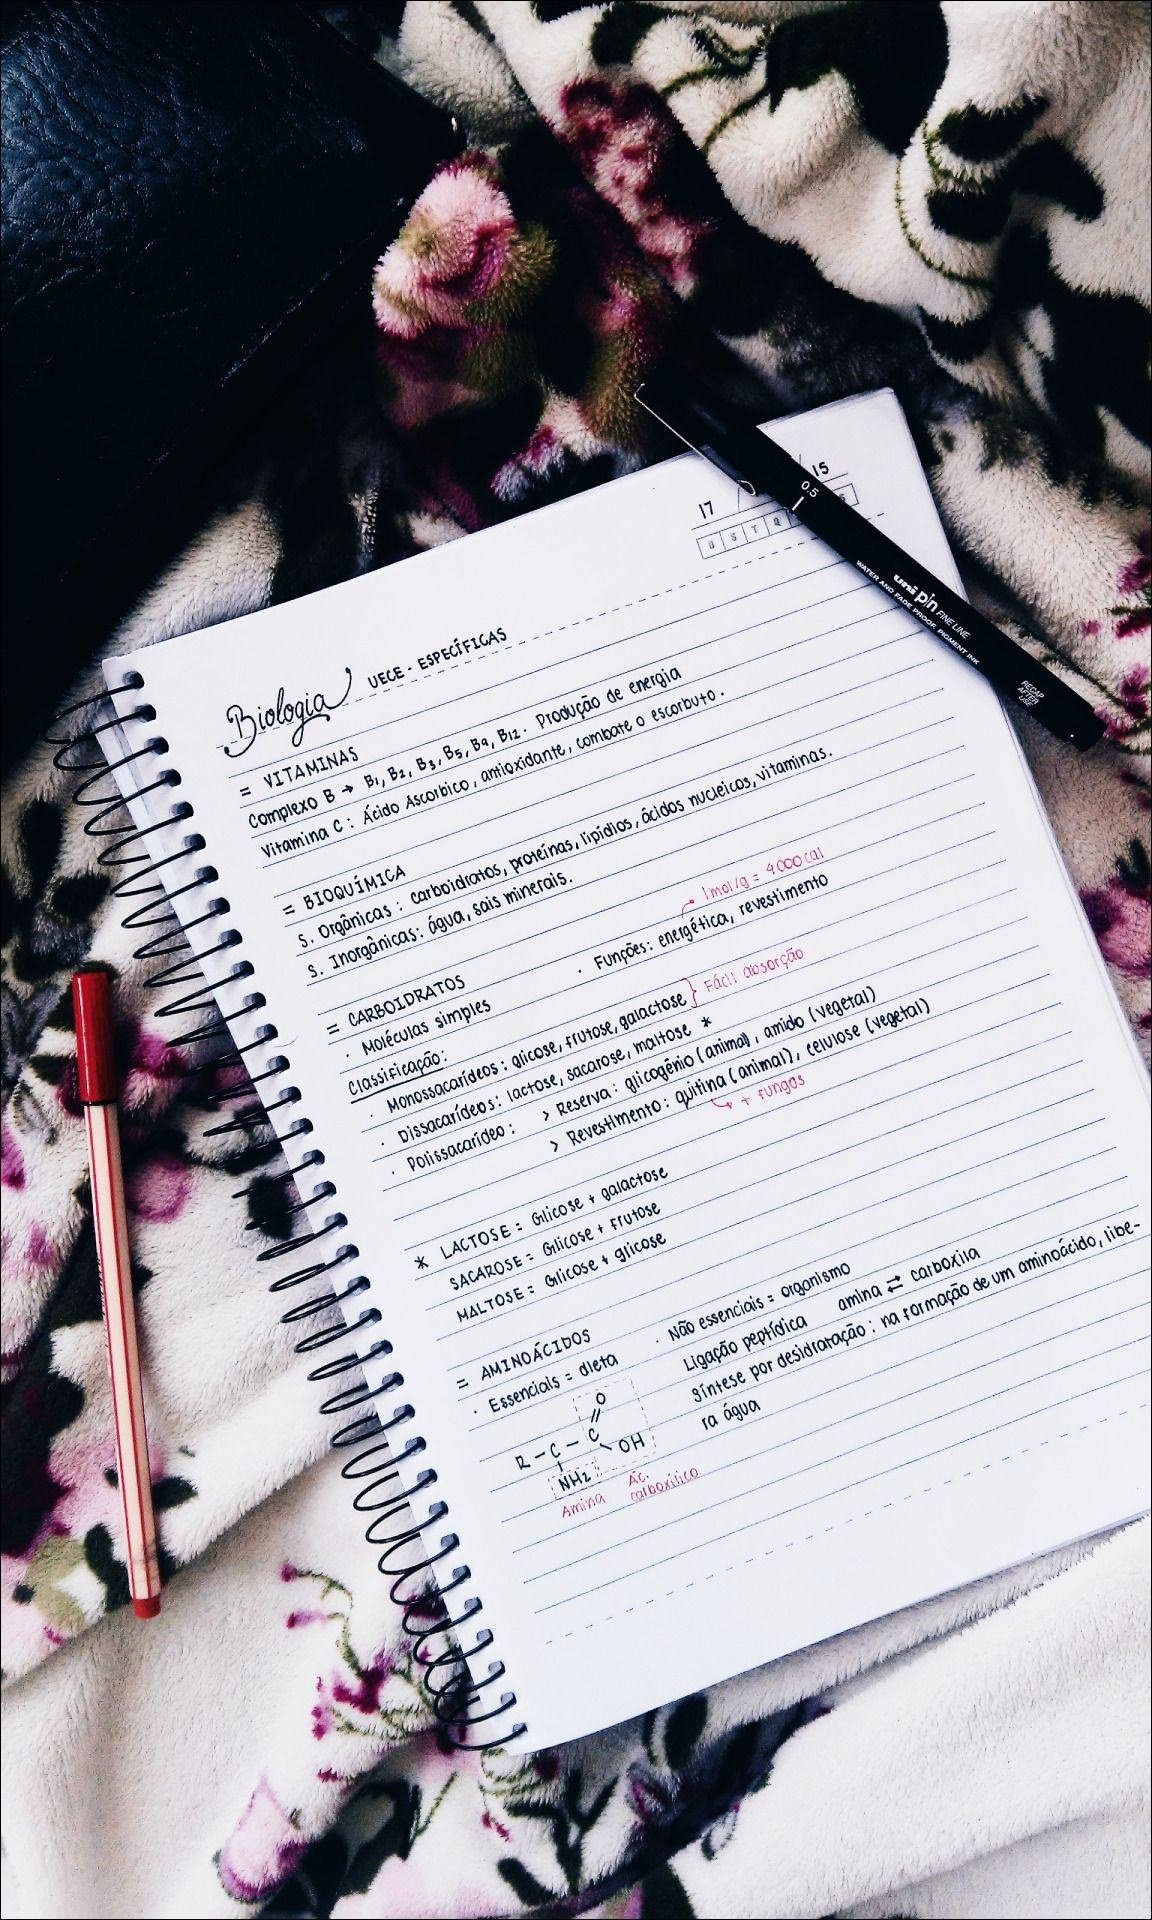 17 / / 15
D S T Q S
0.5
uni pin FINE LINE
WATER AND FADE PROOF, PIGMENT INK
RECAP AFTER USE
Biologia UECE - ESPECÍFICAS
= VITAMINAS
Complexo B → B1, B2, B3, B5, B9, B12. Produção de energia
Vitamina C: Ácido Ascorbico, antioxidante, combate o escorbuto.
= BIOQUÍMICA
S. Orgânicas: carboidratos, proteínas, lipídios, ácidos nucleicos, vitaminas.
S. Inorgânicas: água, sais minerais.
1mol/g = 4000 cal
= CARBOIDRATOS · Funções: energética, revestimento
· Moléculas simples
Classificação:
· Monossacarídeos: glicose, frutose, galactose } Fácil absorção
· Dissacarídeos: lactose, sacarose, maltose *
· Polissacarídeo: > Reserva: glicogênio (animal), amido (vegetal)
> Revestimento: quitina (animal), celulose (vegetal)
↳ + fungos
* LACTOSE = Glicose + galactose
SACAROSE = Glicose + frutose
MALTOSE = Glicose + glicose
= AMINOÁCIDOS · Não essenciais = organismo
· Essenciais = dieta Ligação peptídica amina ⇄ carboxila
síntese por desidratação: na formação de um aminoácido, libe-
ra água
O
R - C - C
OH
NH2
Amina Ác. carboxílico